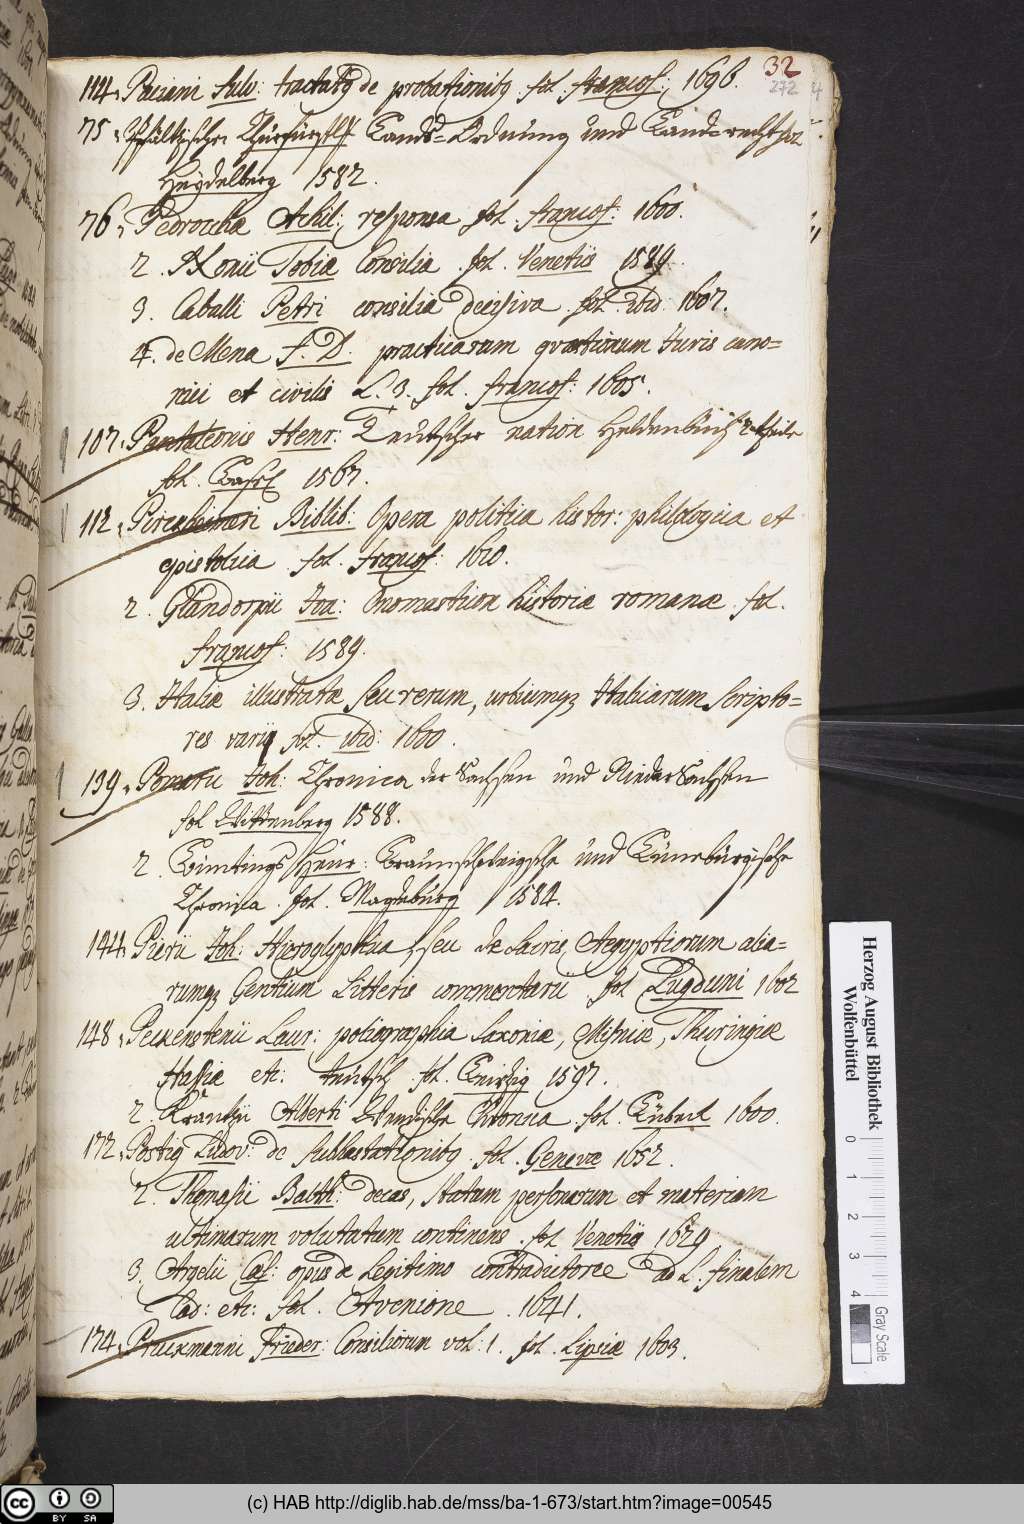 32
272
114. Paciani Fulv: tactatq de probationibq. fol. francof: 1696.
75. Pfältzischer Churfürstl: Lands-Ordnung und Land-recht fol
Heydelberg 1582.
76. Pedrocchæ Achil: responsa fol. francof: 1600.
2. Nonii Tobiæ Consilia. fol. Venetiis 1589.
3. Caballi Petri consilia decisiva. fol. ibid: 1607.
4. de Mena F. D. practicarum quæstionum Juris cano=
nici et civilis L. 3. fol. francof: 1605.
107. Pantaleonis Henr: Teutscher nation Heldenbuch 2 theile
fol. Basel 1567.
112. Pirckheimeri Bilib: Opera politica histor: philologica et
epistolica. fol. francof: 1610.
2. Glandorpii Joa: Onomasticon historiæ romanæ. fol.
francof: 1589.
3. Italiæ illustratæ seu rerum, urbiumq3 Italicarum Scripto=
res varij fol. ibid: 1600.
139. Pomarii Joh: Chronica der Sachsen und NiederSachsen
fol Wittenberg 1588.
2. Büntings Heinr: Braunschweigische und Lüneburgische
Chronica. fol. Magdeburg 1584.
144. Pierii Joh: Hieroglyphica, seu de Sacris Aegyptiorum alia=
rumq3 Gentium Litteris commentarii fol Lugduni 1602
148. Peckenstenii Laur: poliographia Saxoniæ, Misniæ, Thuringiæ
Hassiæ etc: teutsch fol. Leipzig 1597.
2. Krantzii Alberti Wendische Chronica. fol. Lübeck 1600.
172. Postiq Ludov: de Subhastationibq. fol. Genevæ 1652.
2. Thomasii Balth: decas, statum personarum et materiam
ultimarum voluntatum continens. fol Venetiis 1629
3. Argelii Cæs: opus de Legitimo contradictore ad L. finalem
Cod: etc: fol. Avenione. 1641.
174. Pruckmanni Frieder: Consiliorum vol: 1. fol. Lipsiæ 1603.
Herzog August Bibliothek
Wolfenbüttel
0 1 2 3 4
Gray Scale
cc BY SA
(c) HAB http://diglib.hab.de/mss/ba-1-673/start.htm?image=00545